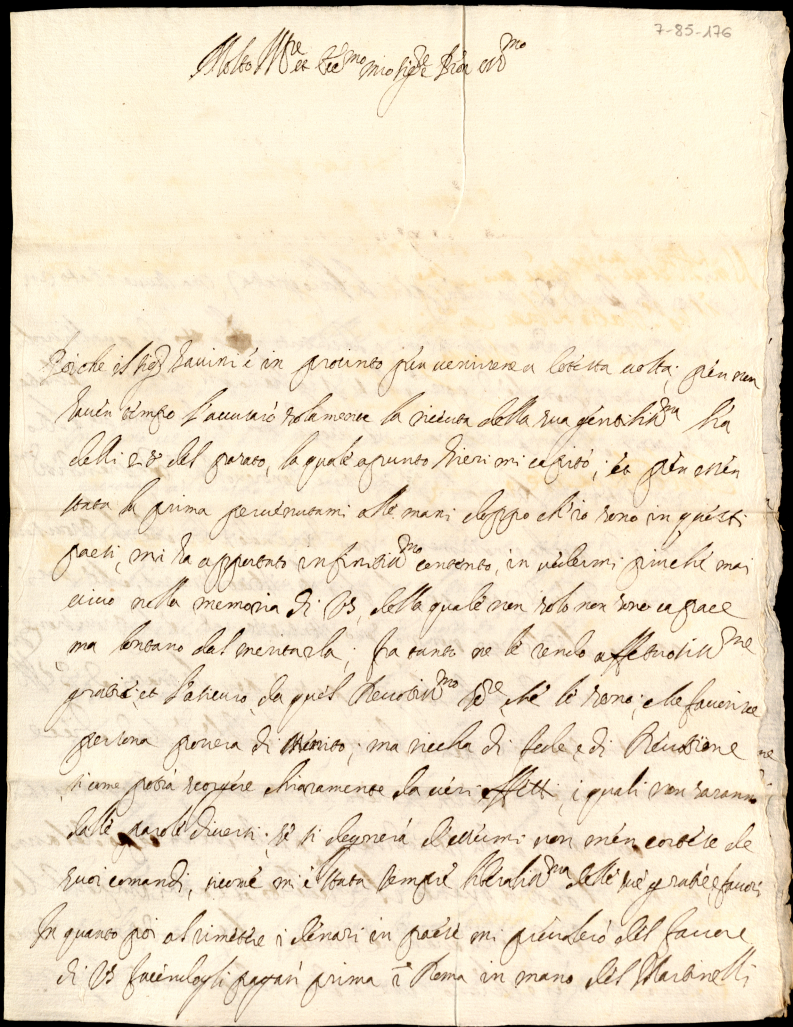 7-85-176
Molto Ill^re et Ecc^mo mio Sig^re P^ron oss^mo
Poiche il Sig^r Tavini è in procinto per venirsene a cotesta volta, per non
haver tempo l'accuserò solamente la ricevuta della sua gentiliss^ma l'ra
delli 28 del passato, la quale apunto hieri mi capitò; et per esser
stata la prima pervenutami alle mani doppo ch'io sono in questi
paesi, mi ha apportato infinitiss^mo contento, in vedermi più che mai
vivo nella memoria di VS, della quale non solo non sono capace
ma lontano dal meritarla; fra tanto ne le rendo affetuosiss^me
gratie, et l'asicuro, da quel Devotiss^mo Se^re, che le sono; che favorisce
persona povera di merito; ma riccha di fede, e di Devotione
si come potrà scorgere chiaramente da veri effetti, i quali non saranno
dalle parole diversi, se si degnerà d'essermi non men cortese de
suoi comandi, sicome mi è stata sempre liberaliss^ma delle sue gratie e favori
In quanto poi al rimettre i denari in paese mi prevalerò del favore
di VS facendogli pagar prima i Roma in mano del Martinelli